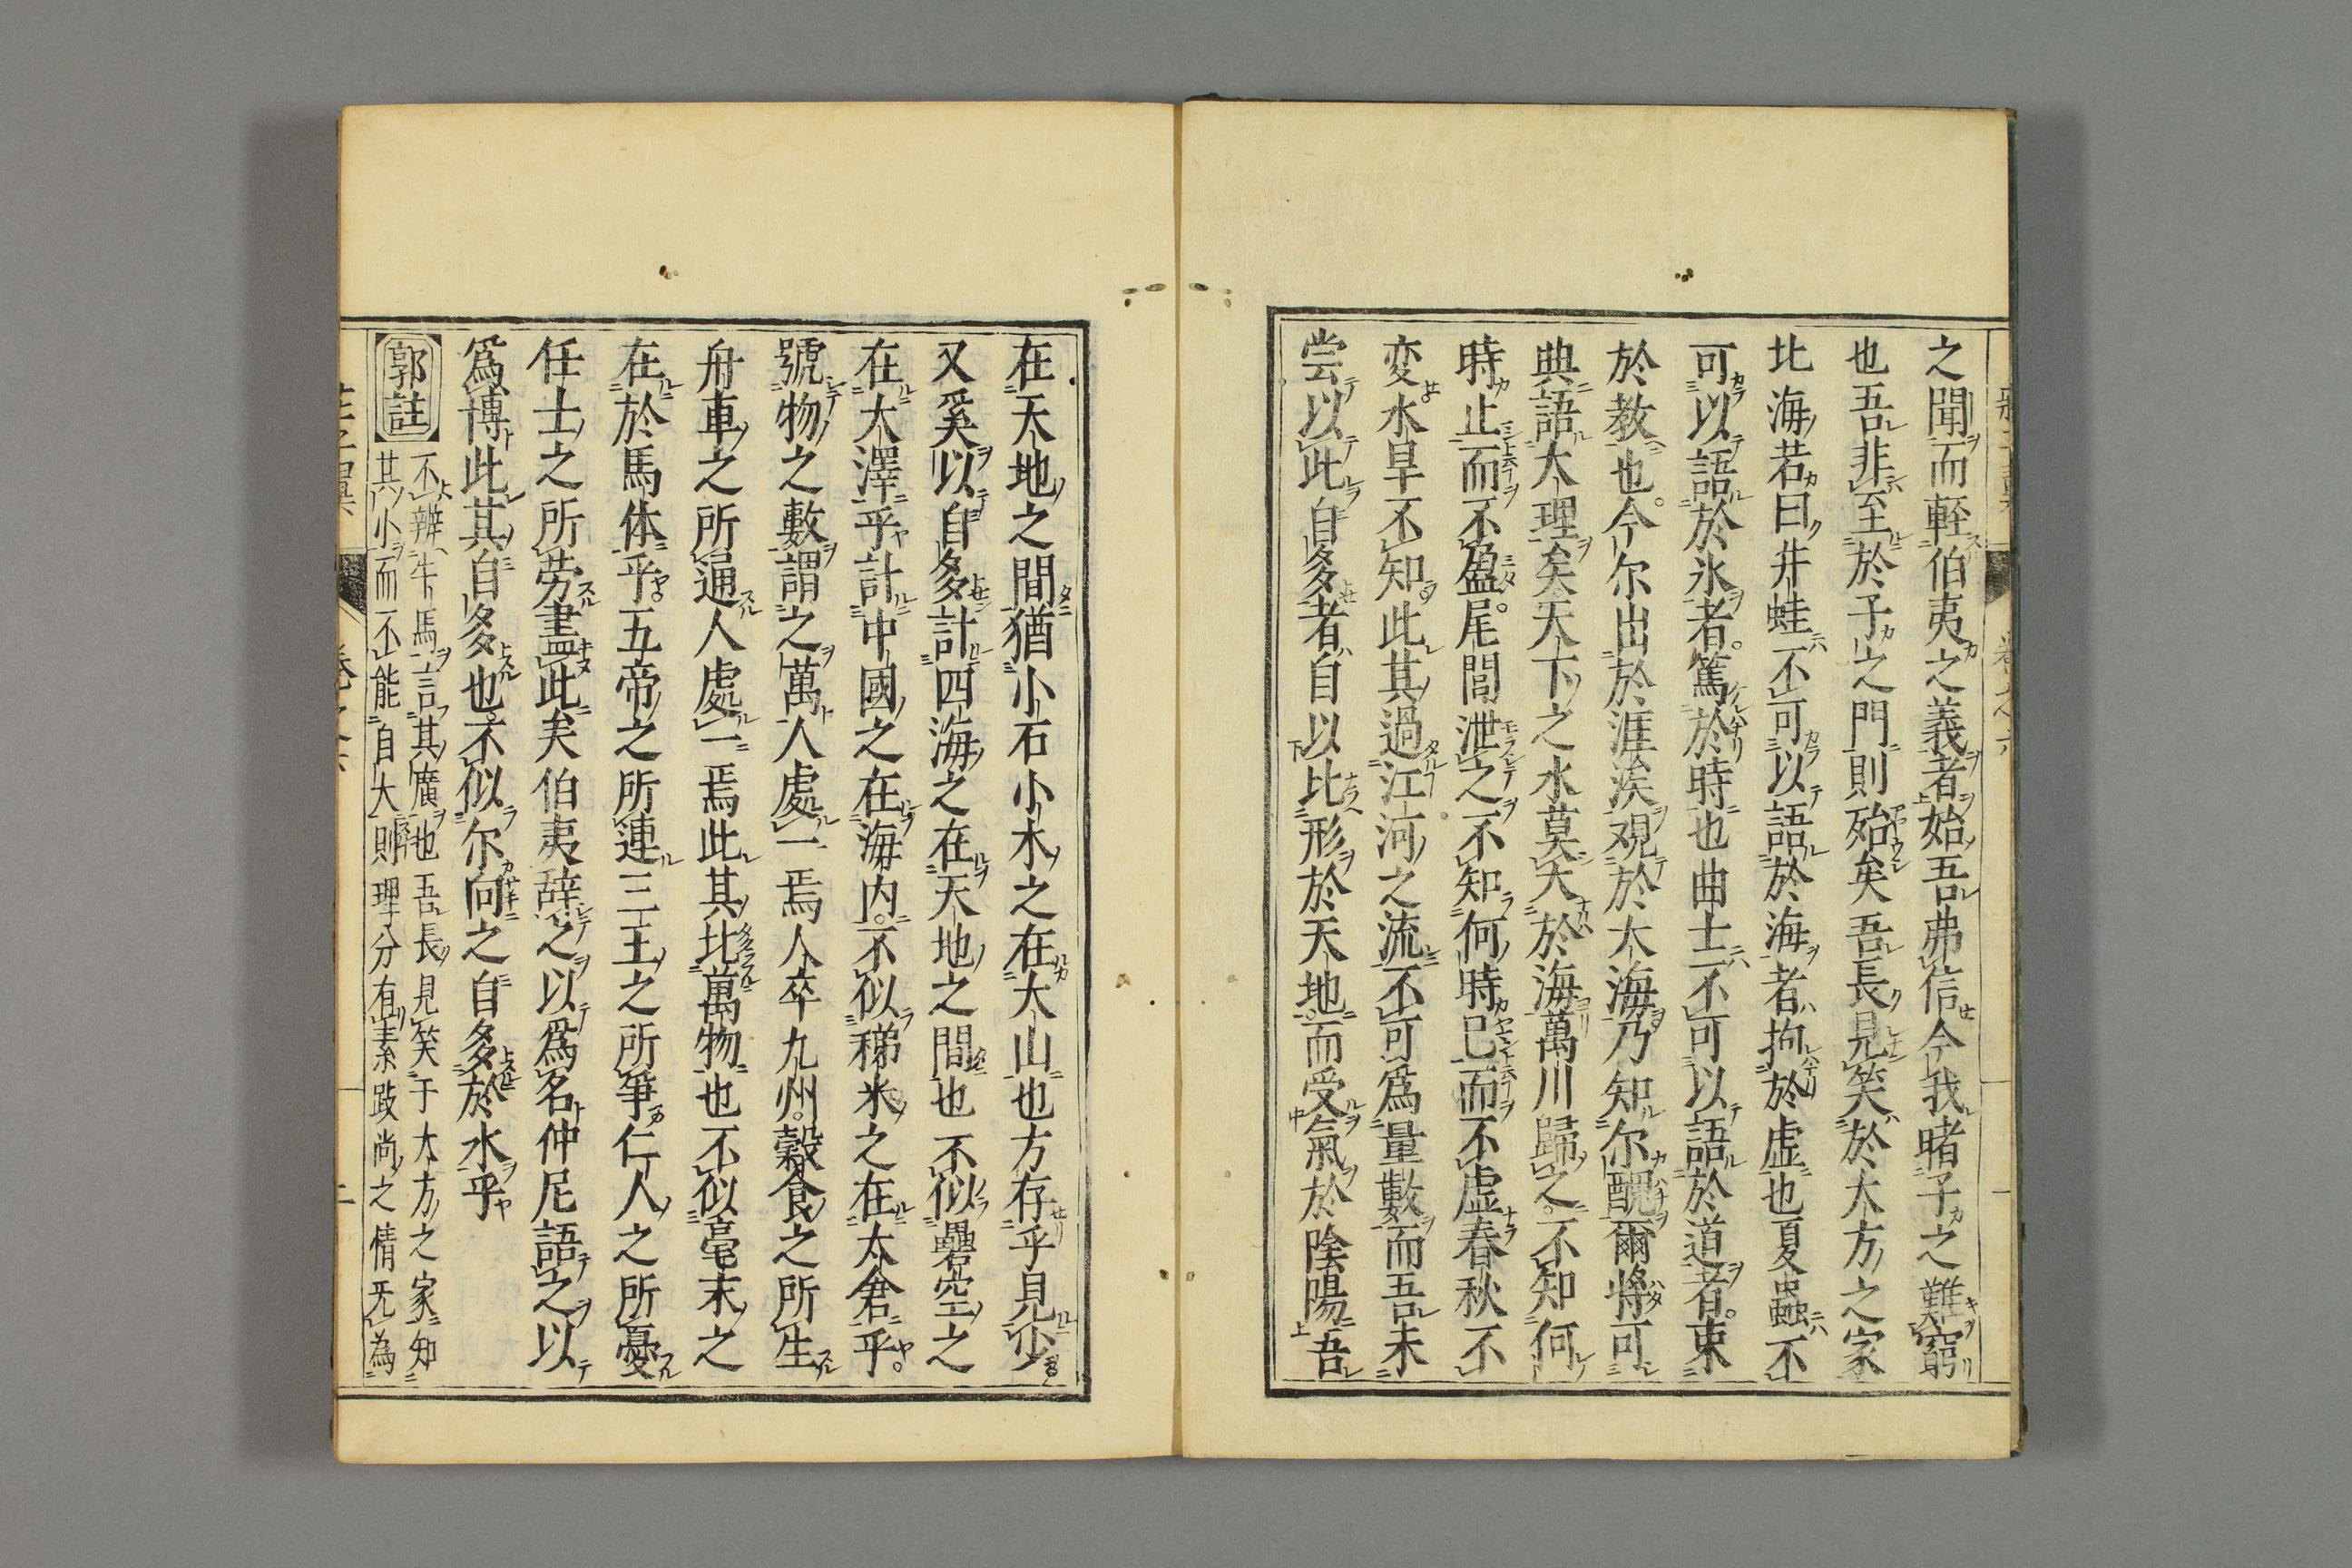 之聞而輊伯夷之義者始吾弗信今我睹子之難窮
也吾非至於子之門則殆矣吾長見笑於大方之家
北海若曰井蛙不可以語於海者拘於虚也夏蟲不
可以語於氷者篤於時也曲士不可以語於道者束
於教也今尓出於涯涘观於大海乃知尓醜爾將可
與語大理矣天下之水莫大於海萬川歸之不知何
時止而不盈尾閭泄之不知何時已而不虚春秋不
变水旱不知此其過江河之流不可爲量數而吾未
尝以此自多者自以比形於天地而受氣於陰陽吾
在天地之間猶小石小木之在大山也方存乎見少
又奚以自多計四海之在天地之間也不似礨空之
在大澤乎計中國之在海内不似稊米之在太倉乎
號物之數謂之萬人處一焉人卒九州穀食之所生
舟車之所通人處一焉此其比萬物也不似毫末之
在於馬体乎五帝之所連三王之所爭仁人之所憂
任士之所勞盡此矣伯夷辞之以爲名仲尼語之以
爲博此其自多也不似尓向之自多於水乎
郭註
不辨牛馬言其廣也吾長見笑于大方之家知
其小而不能自大則理分有素跂尚之情无為